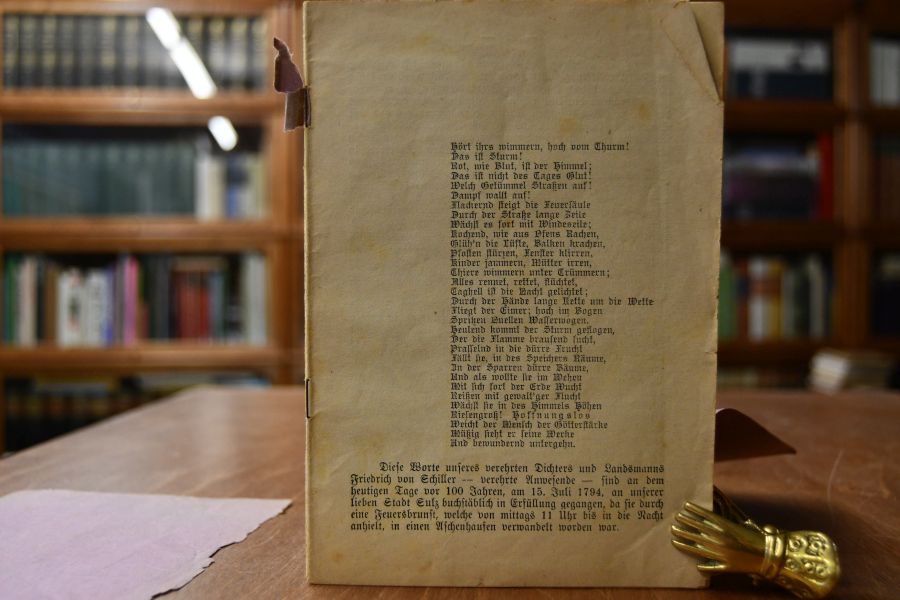 Hört ihrs wimmern, hoch vom Thurm!
Das ist Sturm!
Rot, wie Blut, ist der Himmel;
Das ist nicht des Tages Glut!
Welch Getümmel Straßen auf!
Dampf wallt auf!
Flackernd steigt die Feuersäule
Durch der Straße lange Zeile
Wächst es fort mit Windeseile;
Kochend, wie aus Ofens Rachen,
Glüh'n die Lüfte, Balken krachen,
Pfosten stürzen, Fenster klirren,
Kinder jammern, Mütter irren,
Thiere wimmern unter Trümmern;
Alles rennet, rettet, flüchtet,
Taghell ist die Nacht gelichtet;
Durch der Hände lange Kette um die Wette
Fliegt der Eimer; hoch im Bogen
Spritzen Quellen Wasserwogen.
Heulend kommt der Sturm geflogen,
Der die Flamme brausend sucht,
Prasselnd in die dürre Frucht
Fällt sie, in des Speichers Räume,
In der Sparren dürre Bäume,
Und als wollte sie im Wehen
Mit sich fort der Erde Wucht
Reißen mit gewalt'ger Flucht
Wächst sie in des Himmels Höhen
Riesengroß! Hoffnungslos
Weicht der Mensch der Götterstärke
Müßig sieht er seine Werke
Und bewundernd untergehn.
Diese Worte unseres verehrten Dichters und Landsmanns
Friedrich von Schiller — verehrte Anwesende — sind an dem
heutigen Tage vor 100 Jahren, am 15. Juli 1794, an unserer
lieben Stadt Sulz buchstäblich in Erfüllung gegangen, da sie durch
eine Feuersbrunst, welche von mittags 11 Uhr bis in die Nacht
anhielt, in einen Aschenhaufen verwandelt worden war.